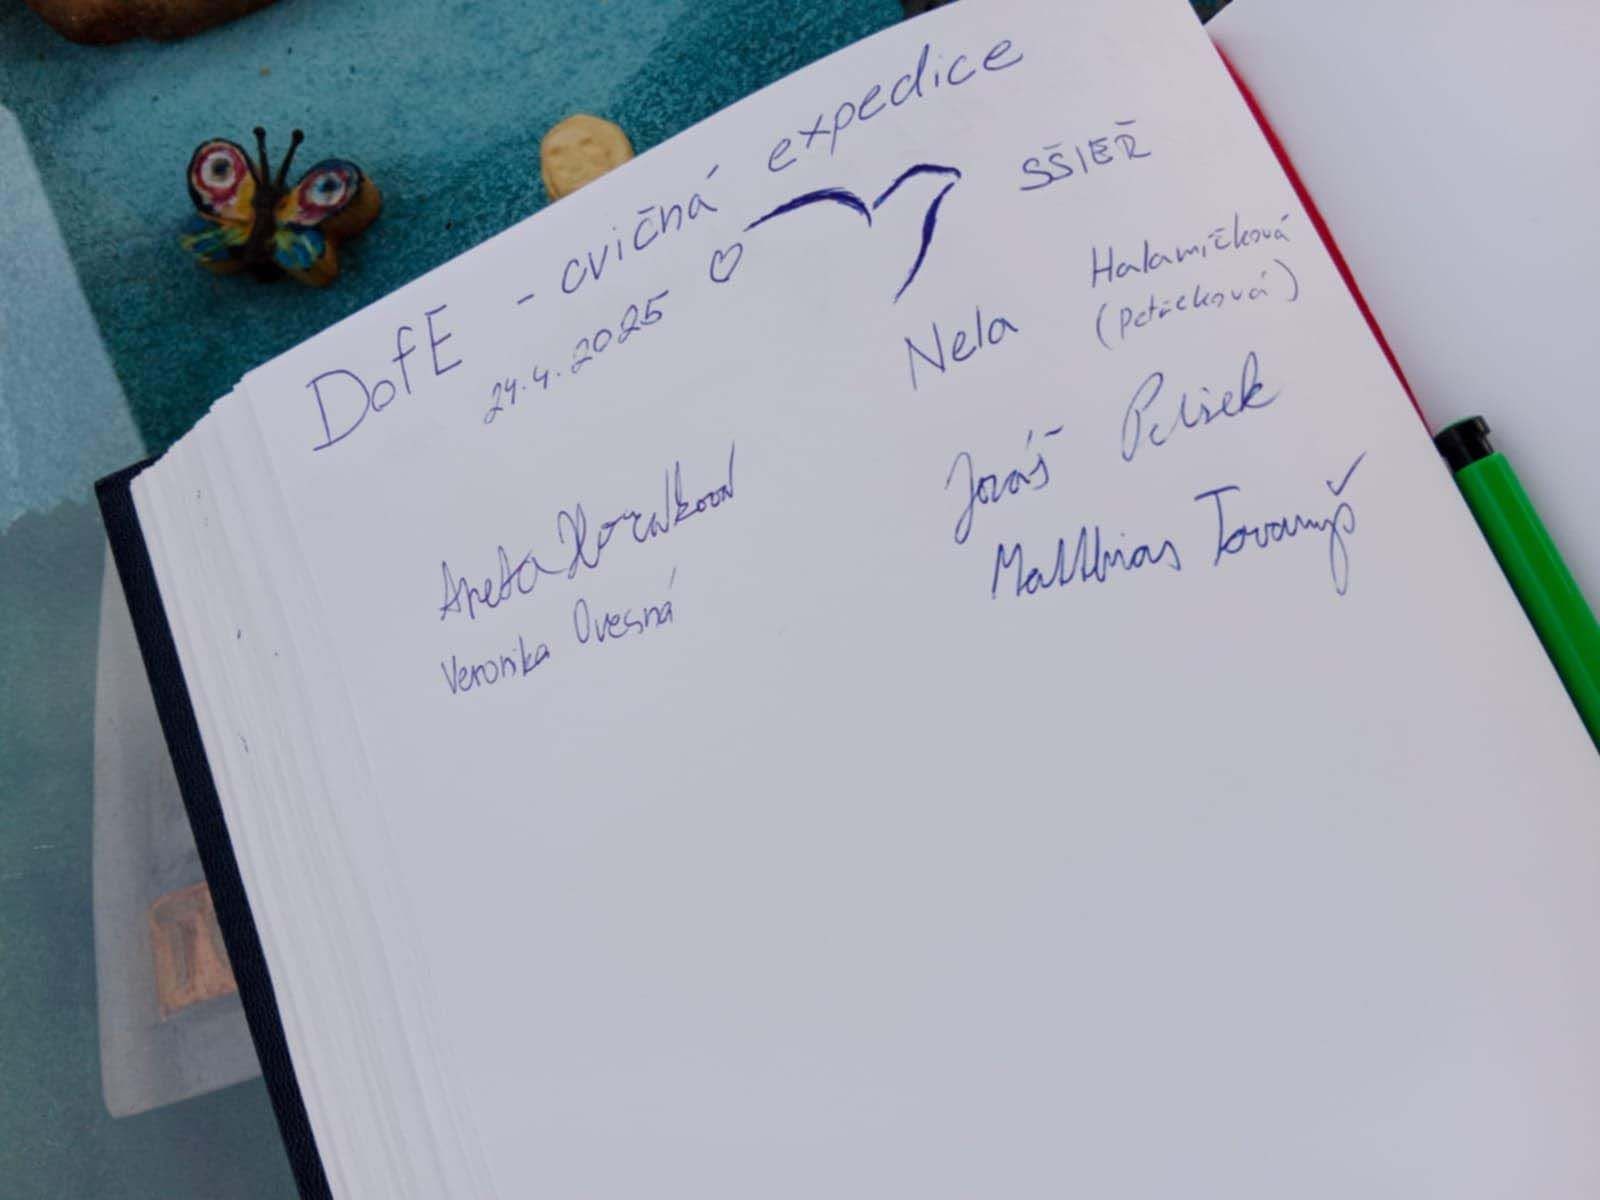 DofE - cvičná expedice
24.4.2025
SŠIEŘ
Nela Halamíčková
Jonáš
Matthias
Aneta Horáková
Veronika Ovesná